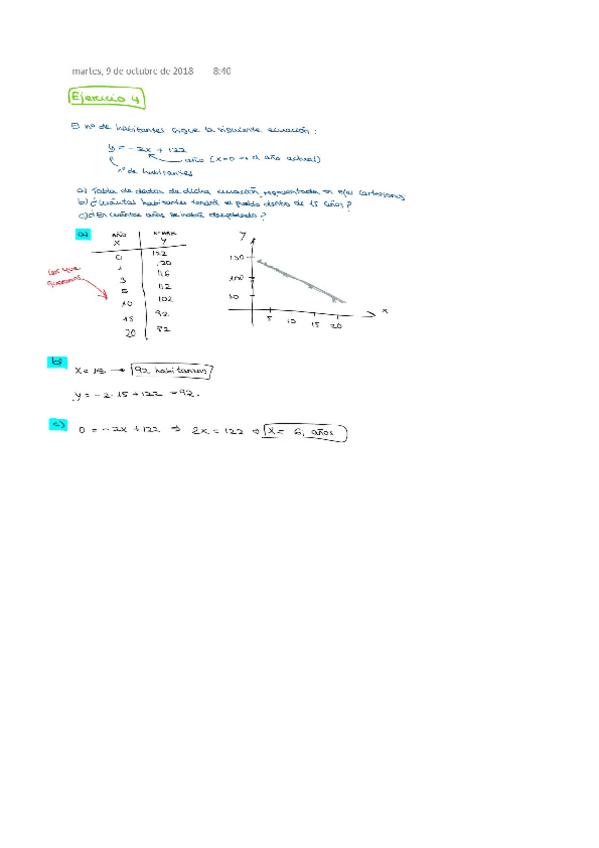 martes, 9 de octubre de 2018 8:40
Ejercicio 4
El nº de habitantes sigue la siguiente ecuación:
y = -2x + 122
año (x=0 → el año actual)
nº de habitantes
a) Tabla de datos de dicha ecuación, representada en ejes cartesianos
b) ¿Cuántos habitantes tendrá el pueblo dentro de 15 años?
c) ¿En cuántos años se habrá despoblado?
a)
AÑO Nº HAB.
X Y
0 122
1 120
3 116
5 112
10 102
15 92
20 82
los que queramos
y
150
100
50
5 10 15 20 x
b)
x = 15 → 92 habitantes
y = -2·15 + 122 = 92.
c) 0 = -2x + 122 ⇒ 2x = 122 ⇒ x = 61 años